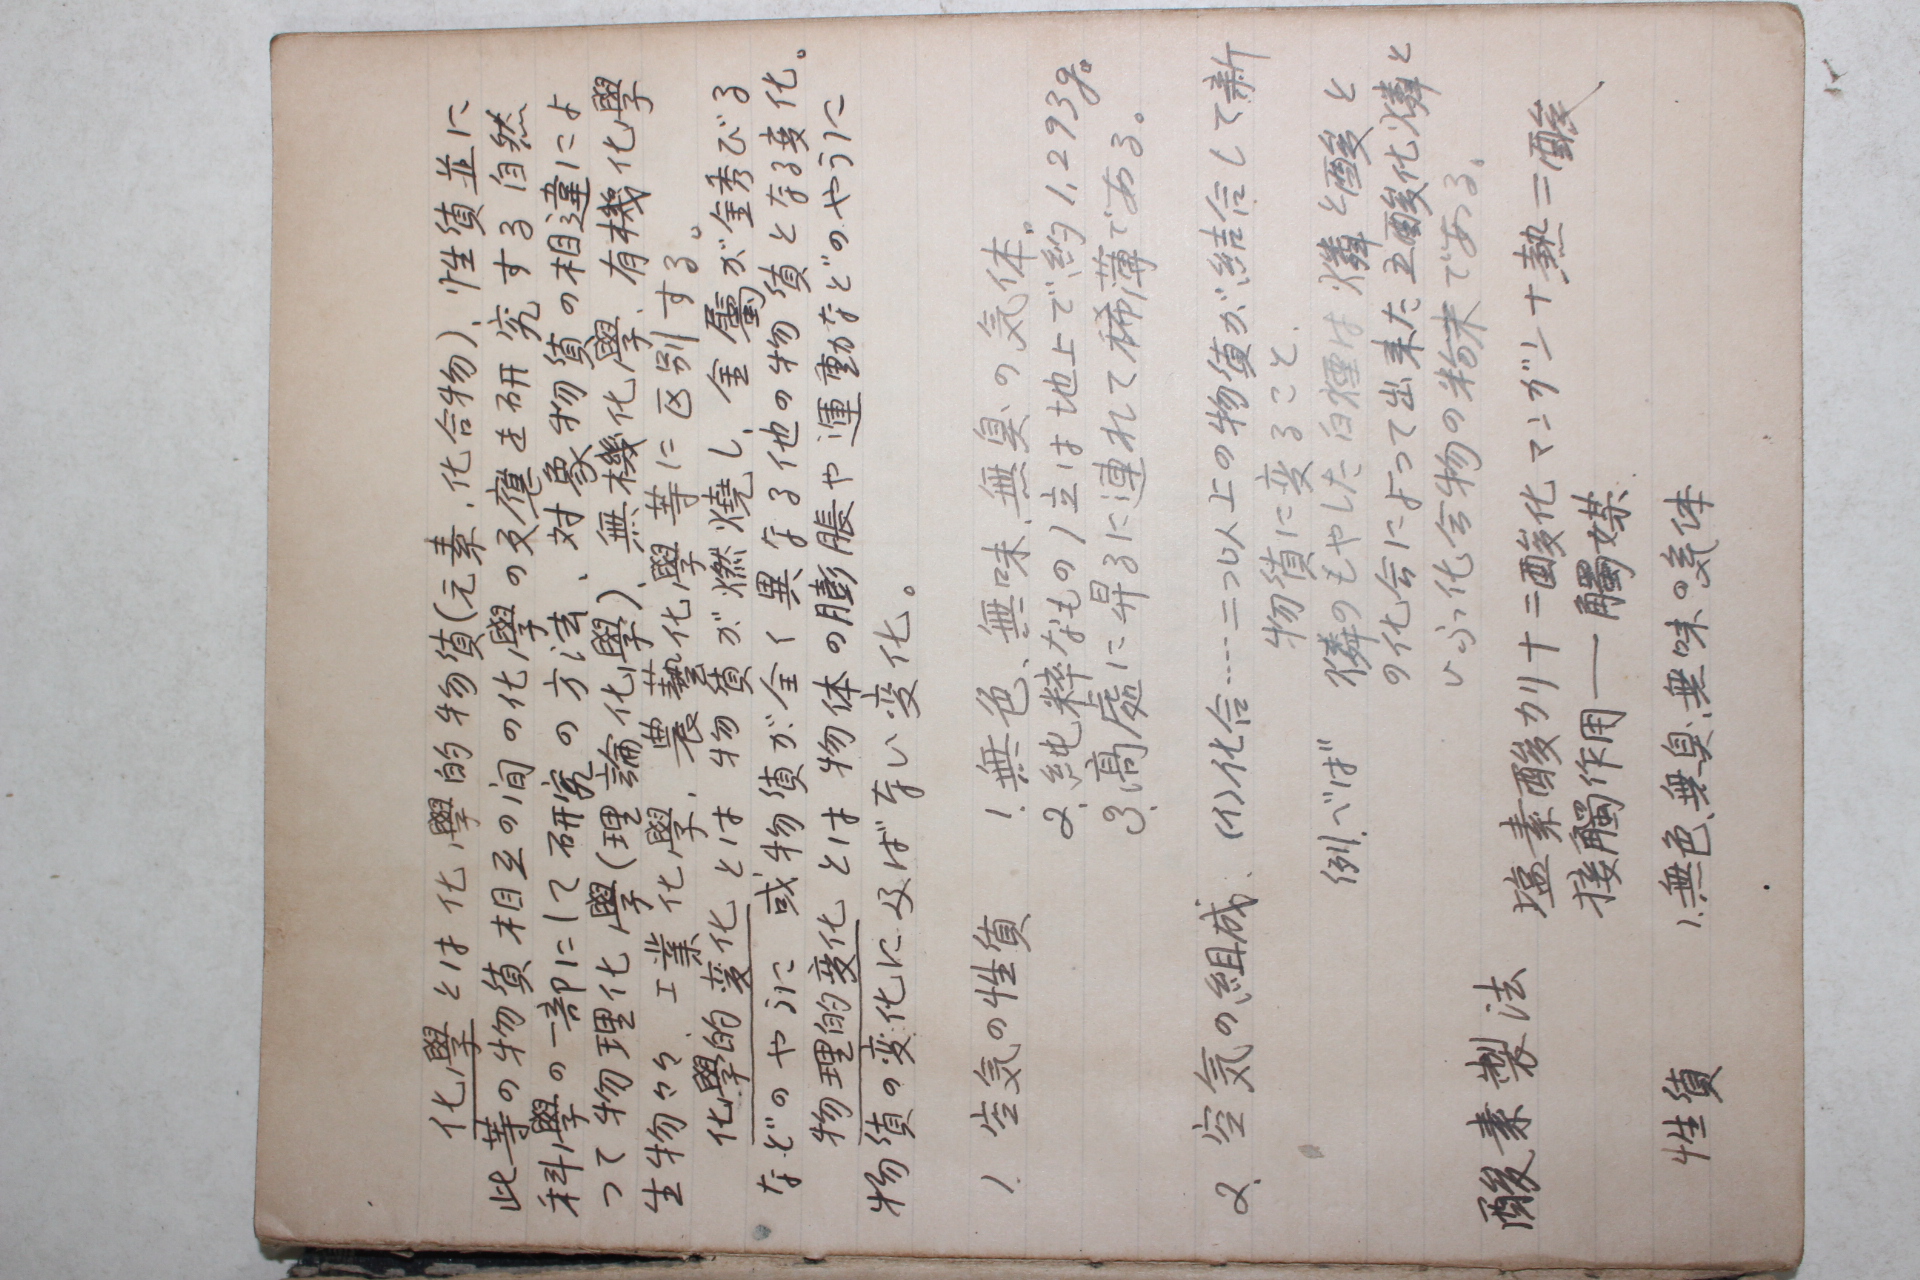 化學とは化學的物質(元素、化合物)、性質並に
此等の物質相互の间の化學の反應を研究する自然
科學の一部にして研究の方法、対象物質の相違によ
つて物理化學(理論化學)、無機化學、有機化學
生物々々工業化學、農藝化學等に区別する。
化學的変化とは物質が燃燒し、金属が金秀びる
などのやうに或物質が全く異なる他の物質となる変化。
物理的変化とは物体の膨脹や運動などのやうに
物質の変化に及ばない変化。
1. 空気の性質 1.無色、無味、無臭、の気体。
2.純粋なもの1立は地上で約1,293g。
3.高處に昇るに連れて稀薄である。
2. 空気の組成、(イ)化合……二つ以上の物質が結合して新
物質に変ること.
例へば 燐のもやした白煙は燐と酸と
の化合によつて出来た五酸化燐と
いふ化合物の粉末である。
酸素製法 塩素酸カリ+二酸化マンガン+熱=酸
接觸作用—觸媒.
性質 1.無色、無臭、無味の気体